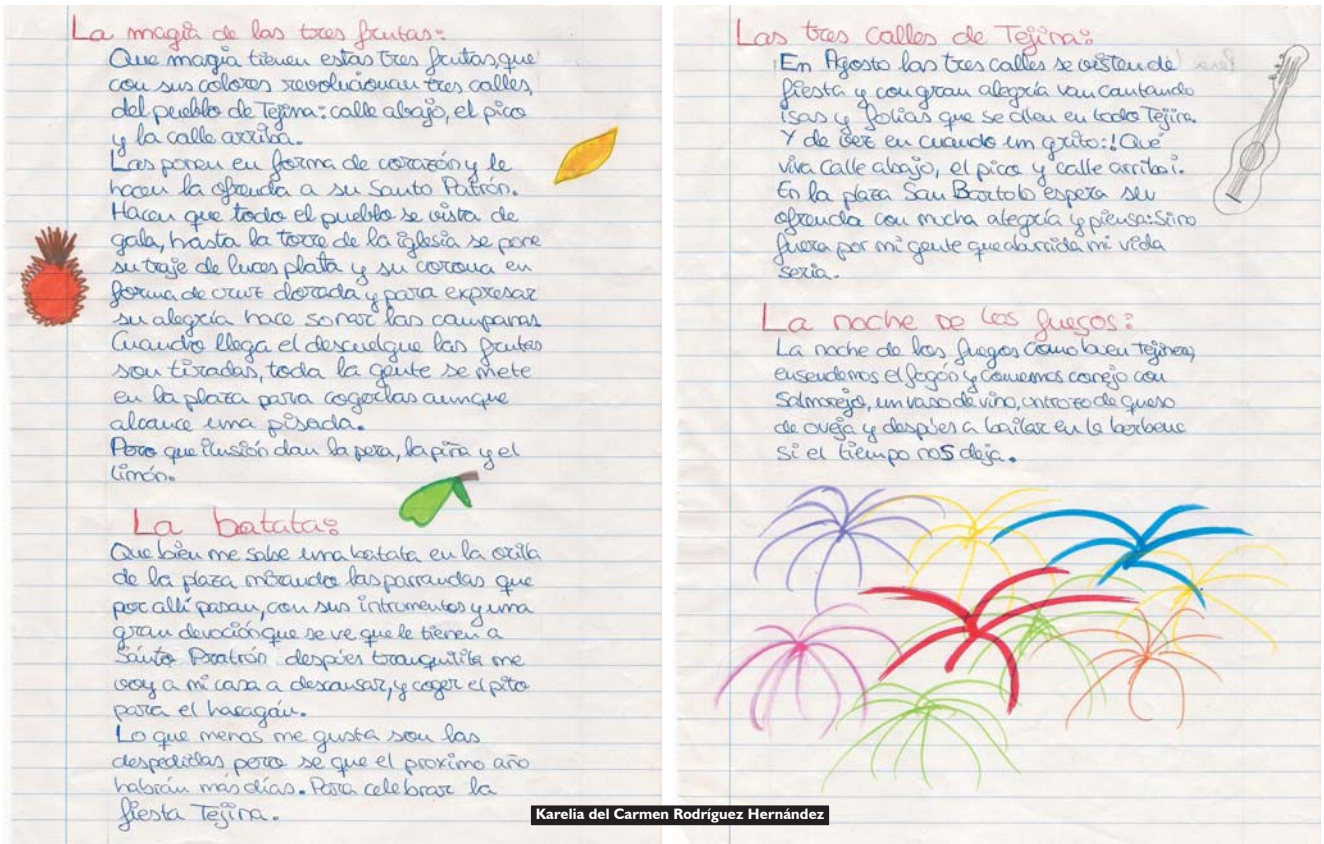 La magia de las tres frutas:
Que magia tienen estas tres frutas, que
con sus colores revolucionan tres calles,
del pueblo de Tejina: calle abajo, el pico
y la calle arriba.
Las ponen en forma de corazón y le
hacen la ofrenda a su Santo Patrón.
Hacen que todo el pueblo se vista de
gala, hasta la torre de la iglesia se pone
su traje de luces plata y su corona en
forma de cruz dorada y para expresar
su alegría hace sonar las campanas.
Cuando llega el descuelgue las frutas
son tiradas, toda la gente se mete
en la plaza para cogerlas aunque
alcance una pisada.
Pero que ilusión dan la pera, la piña y el
limón.
La batata:
Que bien me sabe una batata en la orilla
de la plaza mirando las parrandas que
por allí pasan, con sus intrumentos y una
gran devoción que se ve que le tienen a
Santo Pratrón despúes tranquilita me
voy a mi casa a descansar, y coger el pito
para el haragán.
Lo que menos me gusta son las
despedidas pero se que el proximo año
habrán más días. Para celebrar la
fiesta Tejina.
Las tres calles de Tejina:
En Agosto las tres calles se visten de
fiesta y con gran alegría van cantando
isas y folias que se dien en todo Tejina.
Y de vez en cuando un grito: ! Que
viva calle abajo, el pico y calle arriba¡.
En la plaza San Bartolo espera su
ofrenda con mucha alegría y piensa: Sino
fuera por mi gente que aburrida mi vida
seria.
La noche de los fuegos:
La noche de los fuegos como buen Tejinero,
ensendemos el fogón y comemos conejo con
Salmorejo, un vaso de vino, untrozo de queso
de oveja y despúes a bailar en la berbena
si el tiempo nos deja.
Karelia del Carmen Rodríguez Hernández